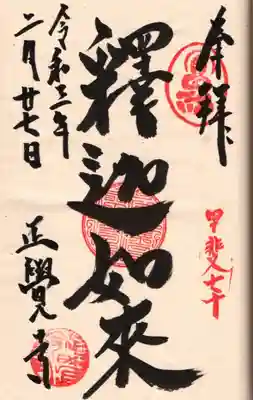 奉拝
甲斐七十
釋迦如來
令和三年
二月廿七日
正覺寺